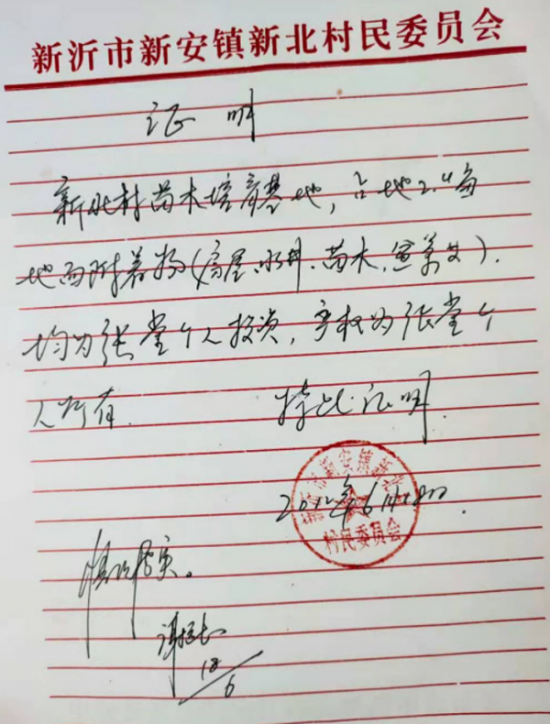 新沂市新安镇新北村民委员会
证明
新北村苗木培育基地，占地2.4亩
地面附着物（房屋、水井、苗木、鱼等），
均为张堂个人投资，产权为张堂个
人所有. 特此证明.
2012年6月18日.
新沂市新安镇新北
村民委员会
情况属实。
18/6